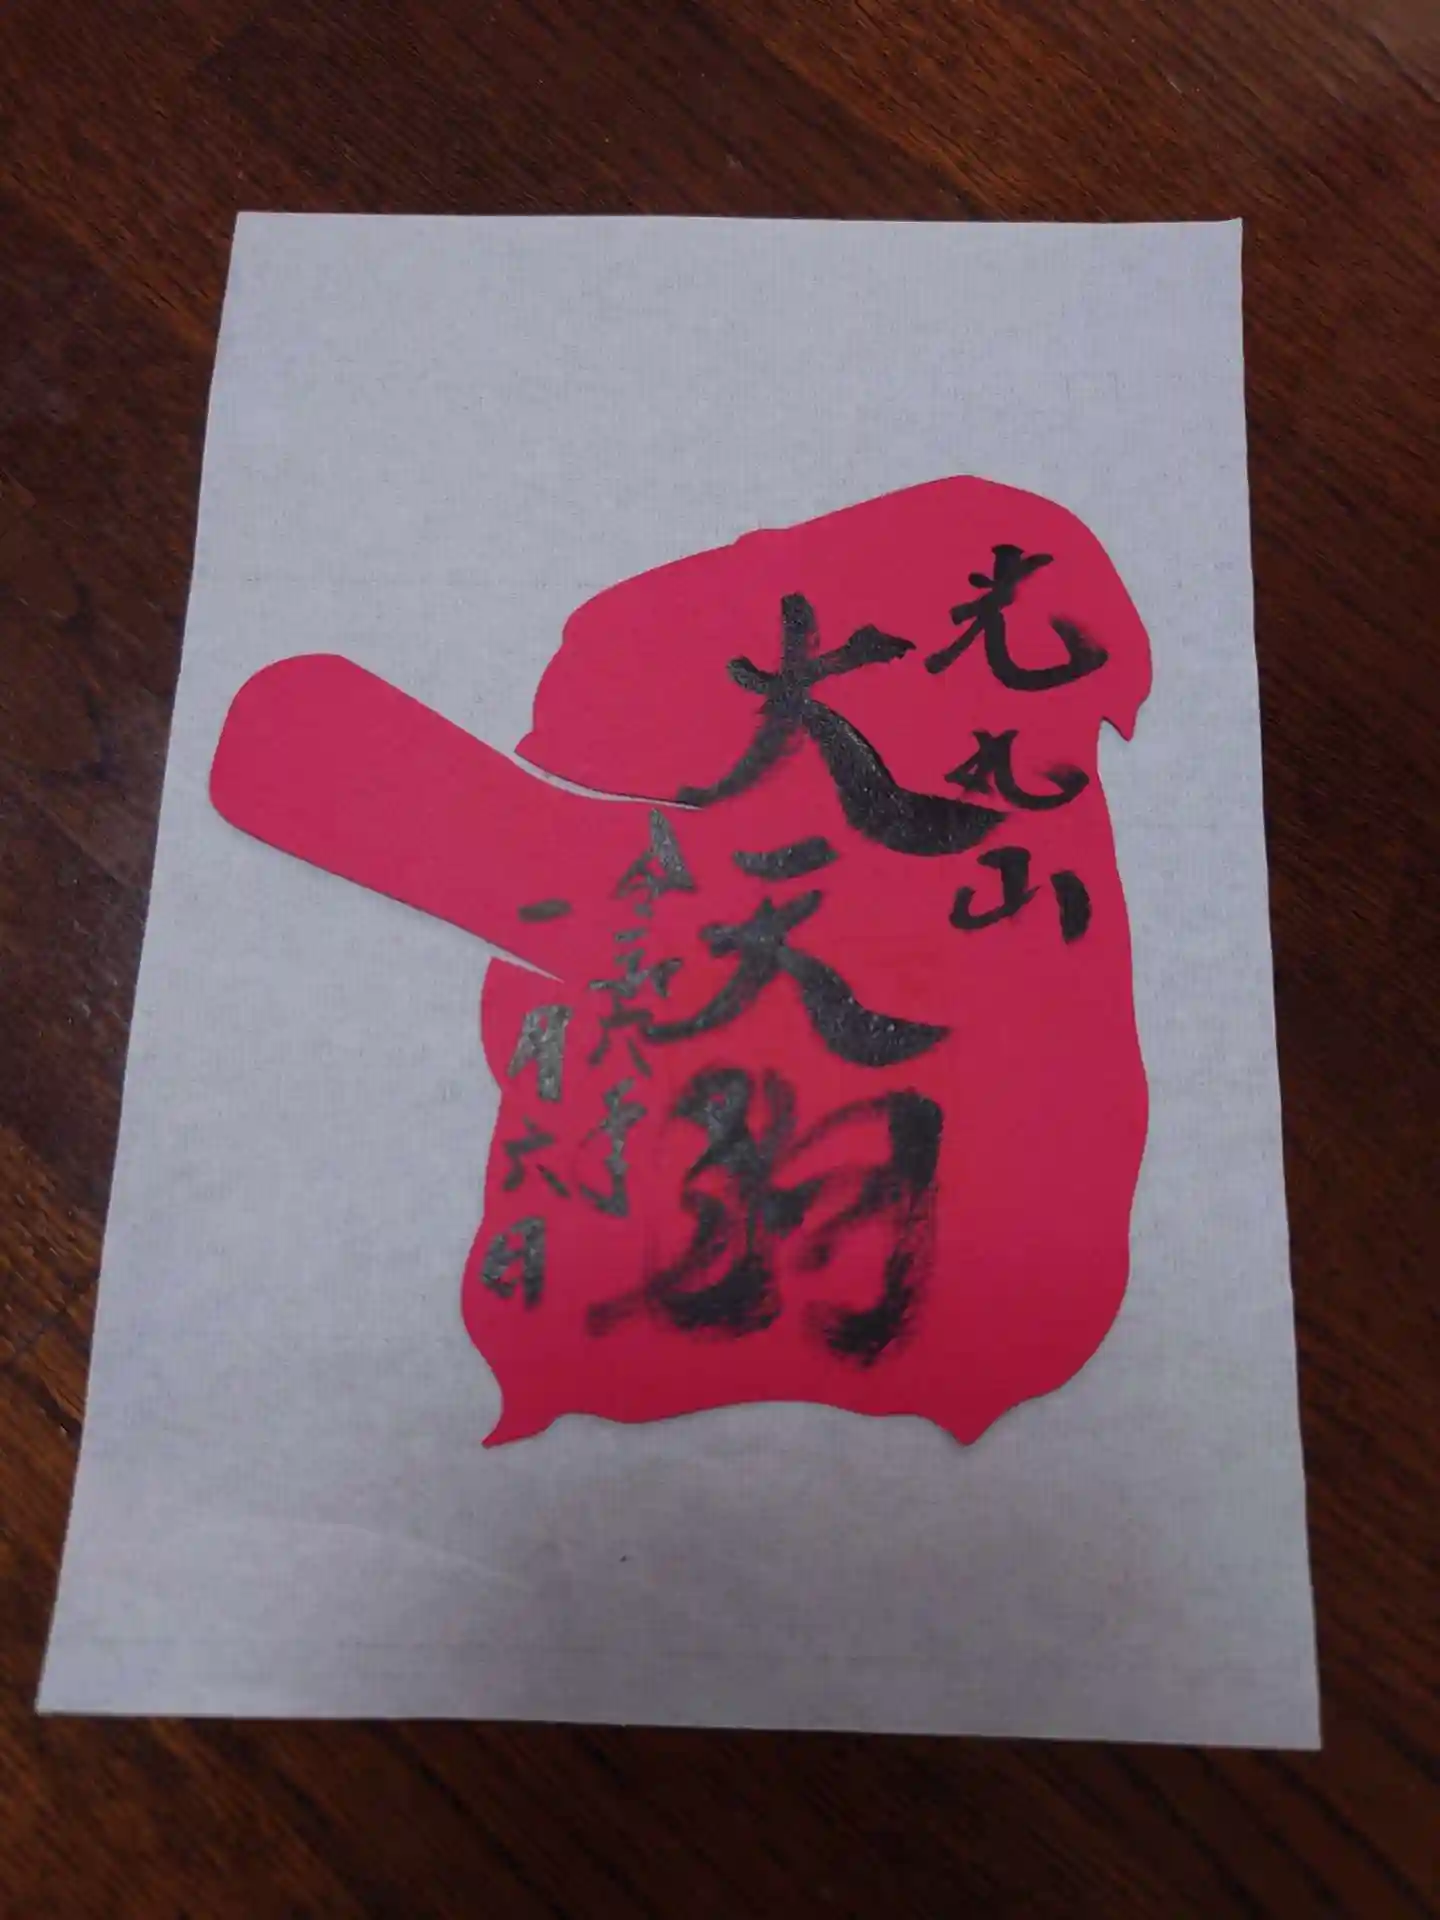 光丸山
大天狗
令和六年
一月六日